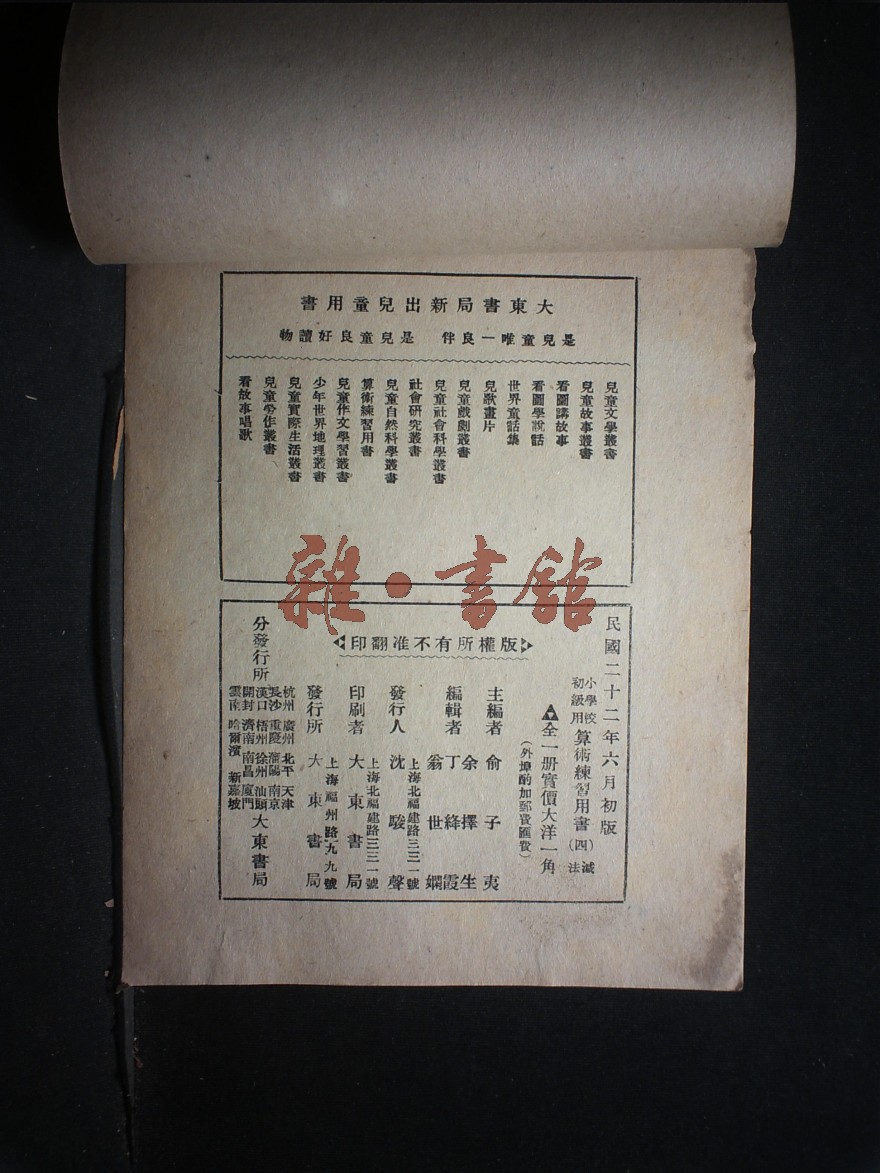 大東書局新出兒童用書
是兒童唯一良伴　是兒童良好讀物
兒童文學叢書
兒童故事叢書
看圖講故事
看圖學說話
世界童話集
兒歌畫片
兒童戲劇叢書
兒童社會科學叢書
社會研究叢書
兒童自然科學叢書
算術練習用書
兒童作文學習叢書
少年世界地理叢書
兒童實際生活叢書
兒童勞作叢書
看故事唱歌
雜·書館
版權所有不准翻印
民國二十二年六月初版
小學校初級用 算術練習用書 (四)減法
全一册實價大洋一角
(外埠酌加郵費匯費)
主編者 俞子夷
編輯者 余擇生
丁絳霞
翁世嫻
發行人 沈駿聲
上海北福建路三三一號
印刷者 大東書局
上海北福建路三三一號
發行所 大東書局
上海福州路一九九號
分發行所
杭州 廣州 北平 天津
長沙 重慶 瀋陽 南京
漢口 梧州 徐州 汕頭
開封 濟南 南昌 廈門
雲南 哈爾濱 新嘉坡
大東書局